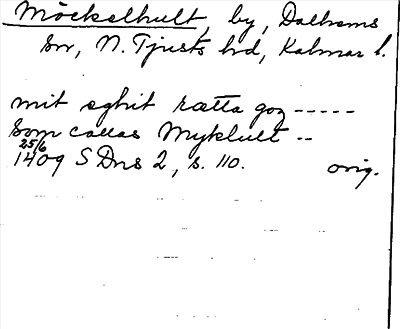 Möckelhult, by, Dalhems
sn, N. Tjusts hd, Kalmar l.
mit æghit rætta goz -----
som callas Myklult --
25/6
1409 SDns 2, s. 110. orig.